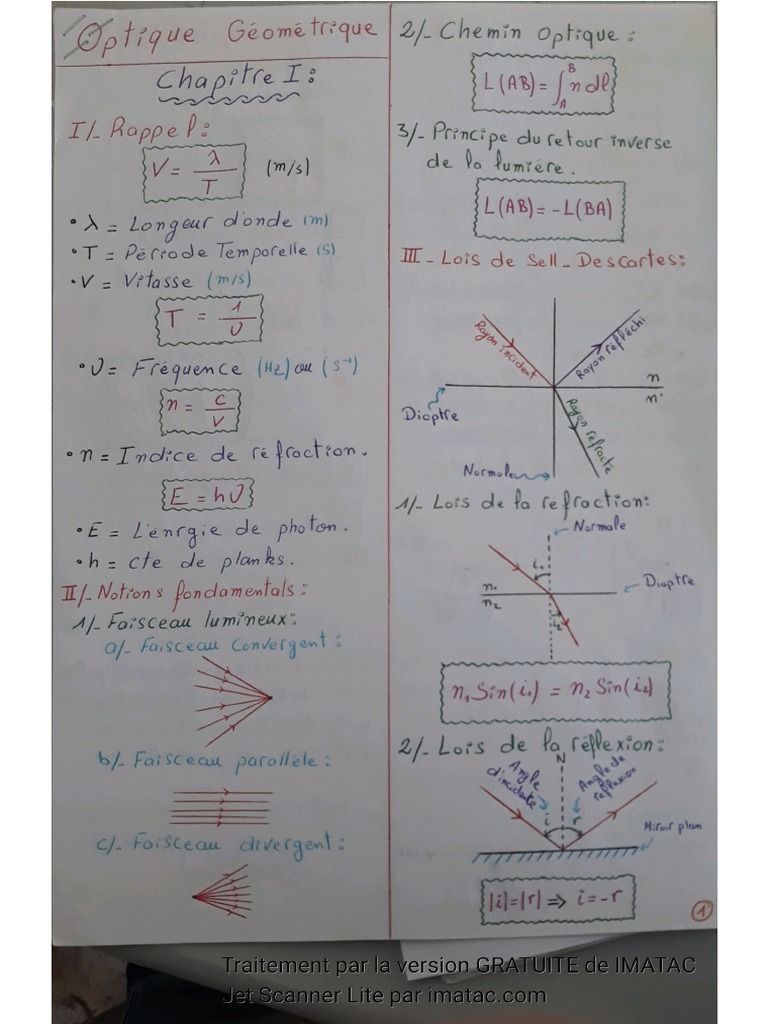 Optique Géométrique
Chapitre I:
I/- Rappel:
V = λ / T (m/s)
• λ = Longeur d'onde (m)
• T = Période Temporelle (s)
• V = Vitasse (m/s)
T = 1 / ν
• ν = Fréquence (Hz) ou (s⁻¹)
n = c / v
• n = Indice de réfraction.
E = hν
• E = L'énrgie de photon.
• h = cte de planks.
II/- Notions fondamentals:
1/- Faisceau lumineux:
a/- Faisceau Convergent:
b/- Faisceau parallèle:
c/- Faisceau divergent:
2/- Chemin optique:
L(AB) = ∫_A^B n dl
3/- Principe du retour inverse
de la lumière.
L(AB) = -L(BA)
III- Lois de Sell-Descartes:
Rayon incident
Rayon réfléchi
n
n'
Dioptre
Rayon réfracté
Normale
1/- Lois de la réfraction:
Normale
i₁
n₁
n₂
Dioptre
i₂
n₁ Sin(i₁) = n₂ Sin(i₂)
2/- Lois de la réflexion:
N
Angle d'incidente
Angle de réflexion
i
r
Miroir plan
|i|=|r| ⇒ i=-r
1
Traitement par la version GRATUITE de IMATAC
Jet Scanner Lite par imatac.com